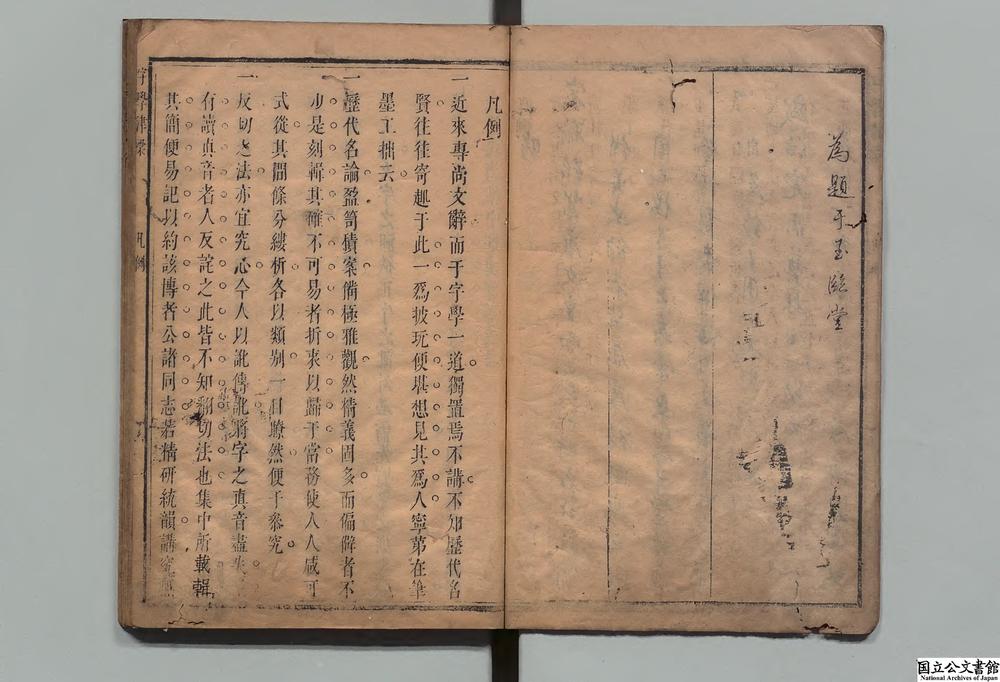 為題于玉臨堂
凡例
一近來專尚文辭而于字學一道獨置焉不講不知歷代名
賢往往寄趣于此一爲披玩便堪想見其爲人寧第在筆
墨工拙云
一歷代名論盈笥積案備極雅觀然精義固多而偏僻者不
少是刻輯其確不可易者折衷以歸于當務使人人咸可
式從其間條分縷析各以類别一目瞭然便于叅究
一反切之法亦宜究心今人以訛傳訛將字之真音盡失
有讀真音者人反詫之此皆不知翻切法也集中所載輯
其簡便易記以約該傳者公諸同志若精研統韻講究
字學津梁
凡例
国立公文書館
National Archives of Japan